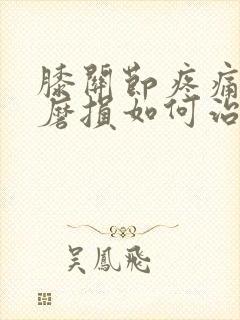 膝關節疼痛
磨損如何治
吳鳳飛